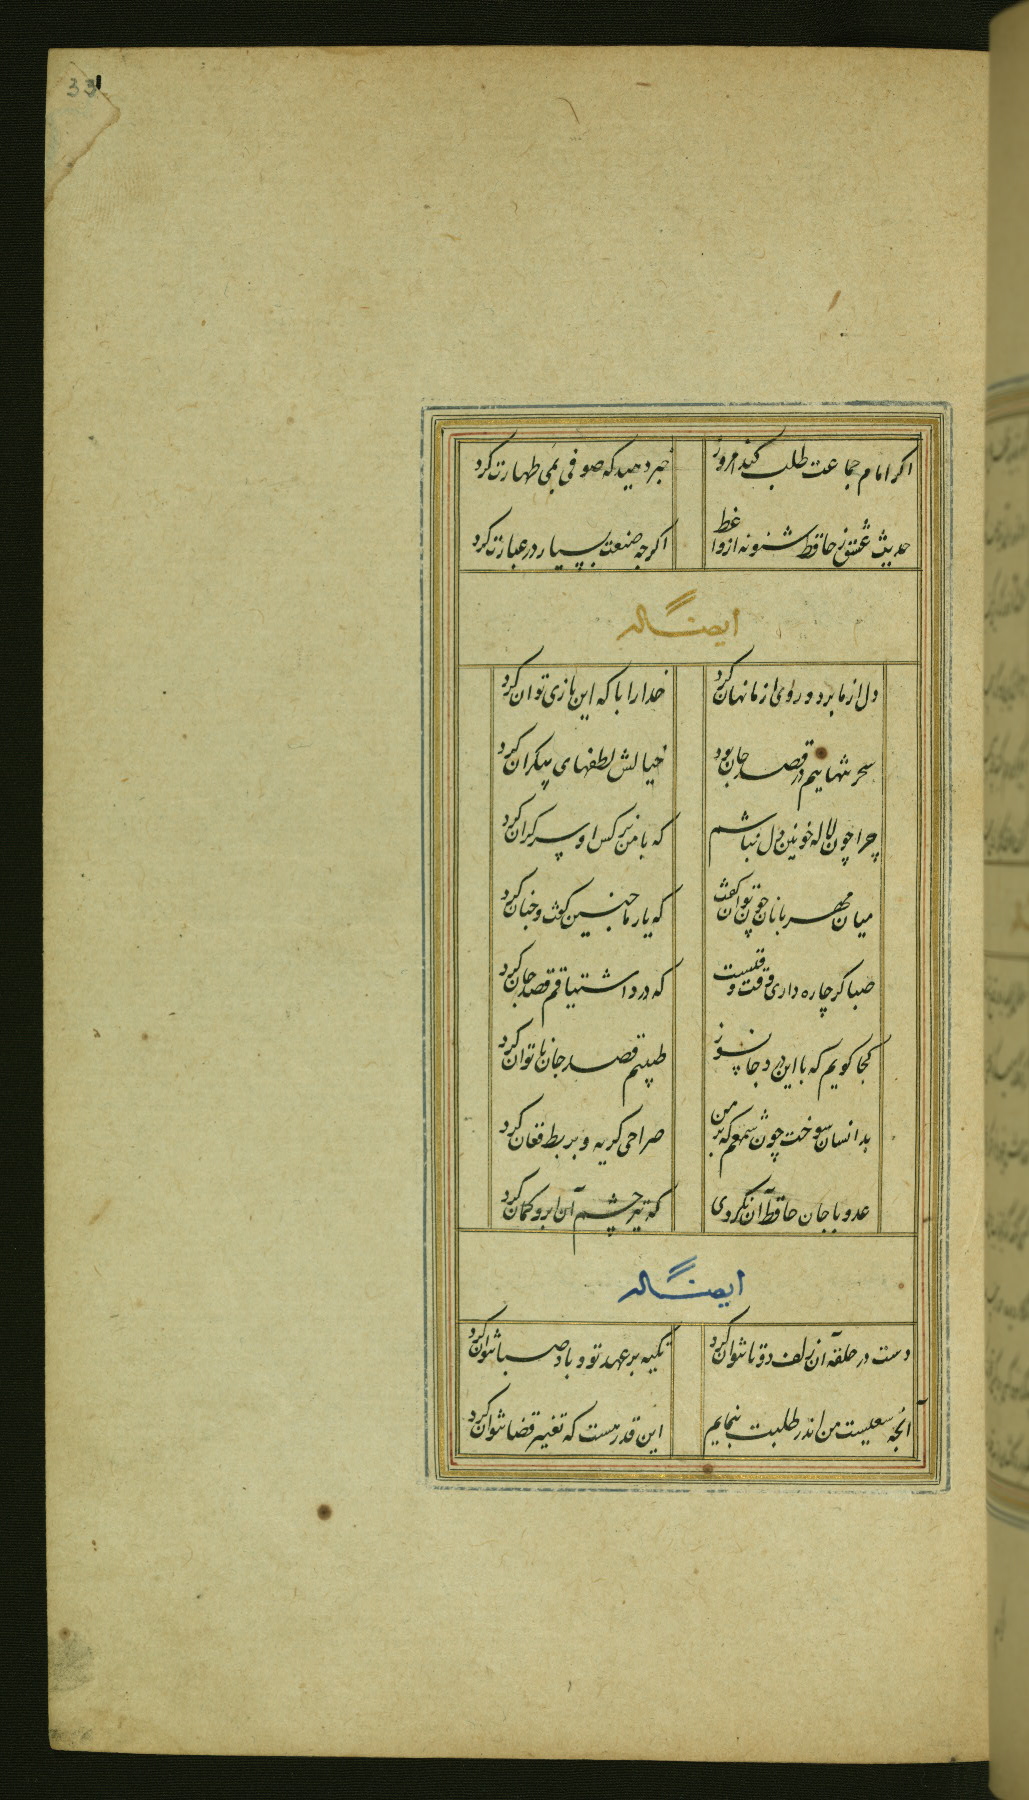 33
اکر امام جماعت طلب کند امروز
خبر دهید که صوفی بمی طهارت کرد
حدیث عشق ز حافظ شنو نه از واعظ
اکرچه صنعت بسیار در عبارت کرد
ایضاله
دل از ما برد و روی از ما نهان کرد
خدارا با که این بازی توان کرد
سحر تنهاییم در قصد جان بود
خیالش لطفهای بیکران کرد
چرا چون لاله خونین دل نباشم
که با من نرکس او سر کران کرد
میان مهربانان چون توان کفت
که یار ما چنین کفت و چنان کرد
صبا کر چاره داری وقت وقتست
که درد اشتیاقم قصد جان کرد
کجا کویم که با این درد جانسوز
طبیبم قصد جان ناتوان کرد
بدانسان سوخت چون شمعم که بر من
صراحی کریه و بربط فغان کرد
عدو با جان حافظ آن نکردی
که تیر چشم آن ابرو کمان کرد
ایضاله
دست در حلقه آن زلف دوتا نتوان کرد
تکیه بر عهد تو و باد صبا نتوان کرد
آنچه سعیست من اندر طلبت بنمایم
این قدر هست که تغییر قضا نتوان کرد